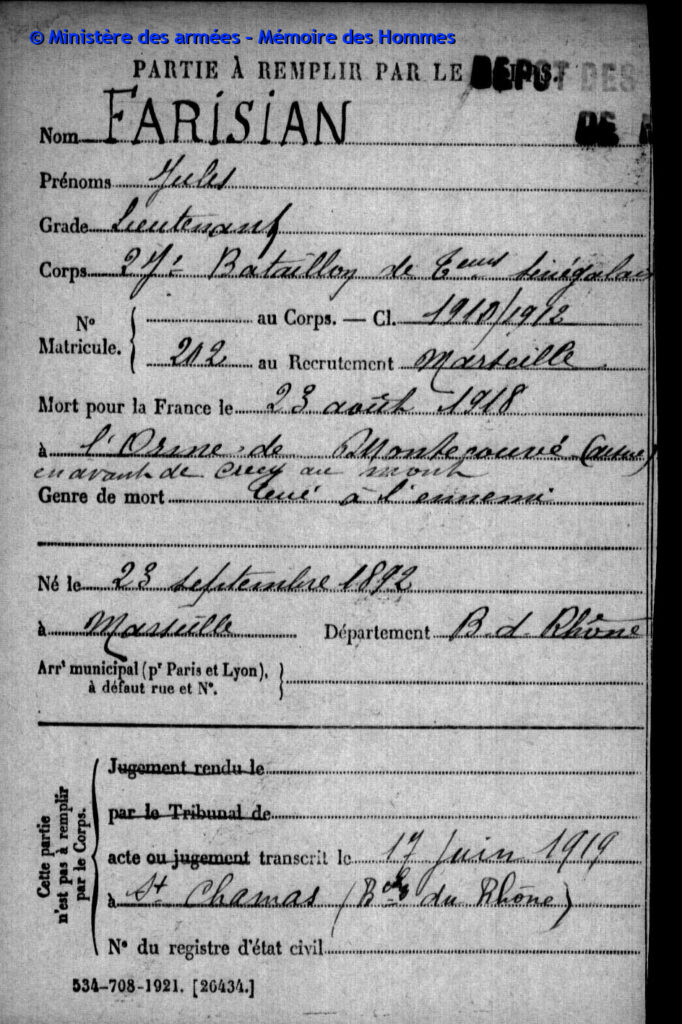 © Ministère des armées - Mémoire des Hommes
PARTIE À REMPLIR PAR LE CORPS.
DÉPÔT DES
DE
Nom FARISIAN
Prénoms Jules
Grade Lieutenant
Corps 27e Bataillon de Teurs Sénégalais
No Matricule. { au Corps. — Cl. 1910/1912
202 au Recrutement Marseille
Mort pour la France le 23 août 1918
à l'Orme de Montecouvé (Aisne)
en avant de Crecy au mont
Genre de mort tué à l'ennemi
Né le 23 septembre 1892
à Marseille Département B. d. Rhône
Arrt municipal (pr Paris et Lyon), }
à défaut rue et No.
Cette partie n'est pas à remplir par le Corps. {
Jugement rendu le
par le Tribunal de
acte ou jugement transcrit le 17 juin 1919
à St Chamas (Bches du Rhône)
No du registre d'état civil
534-708-1921. [26434.]